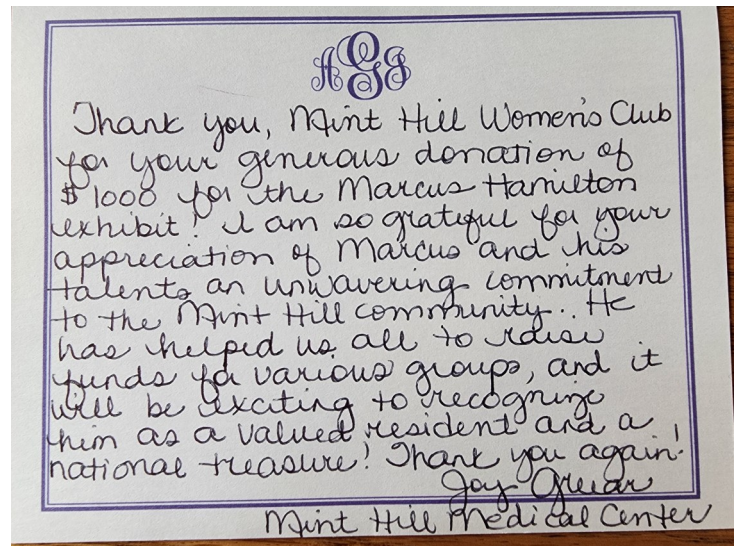 AGJ
Thank you, Mint Hill Women's Club
for your generous donation of
$1000 for the Marcus Hamilton
exhibit! I am so grateful for your
appreciation of Marcus and his
talents an unwavering commitment
to the Mint Hill community. He
has helped us all to raise
funds for various groups, and it
will be exciting to recognize
him as a valued resident and a
national treasure! Thank you again!
Joy Greear
Mint Hill Medical Center